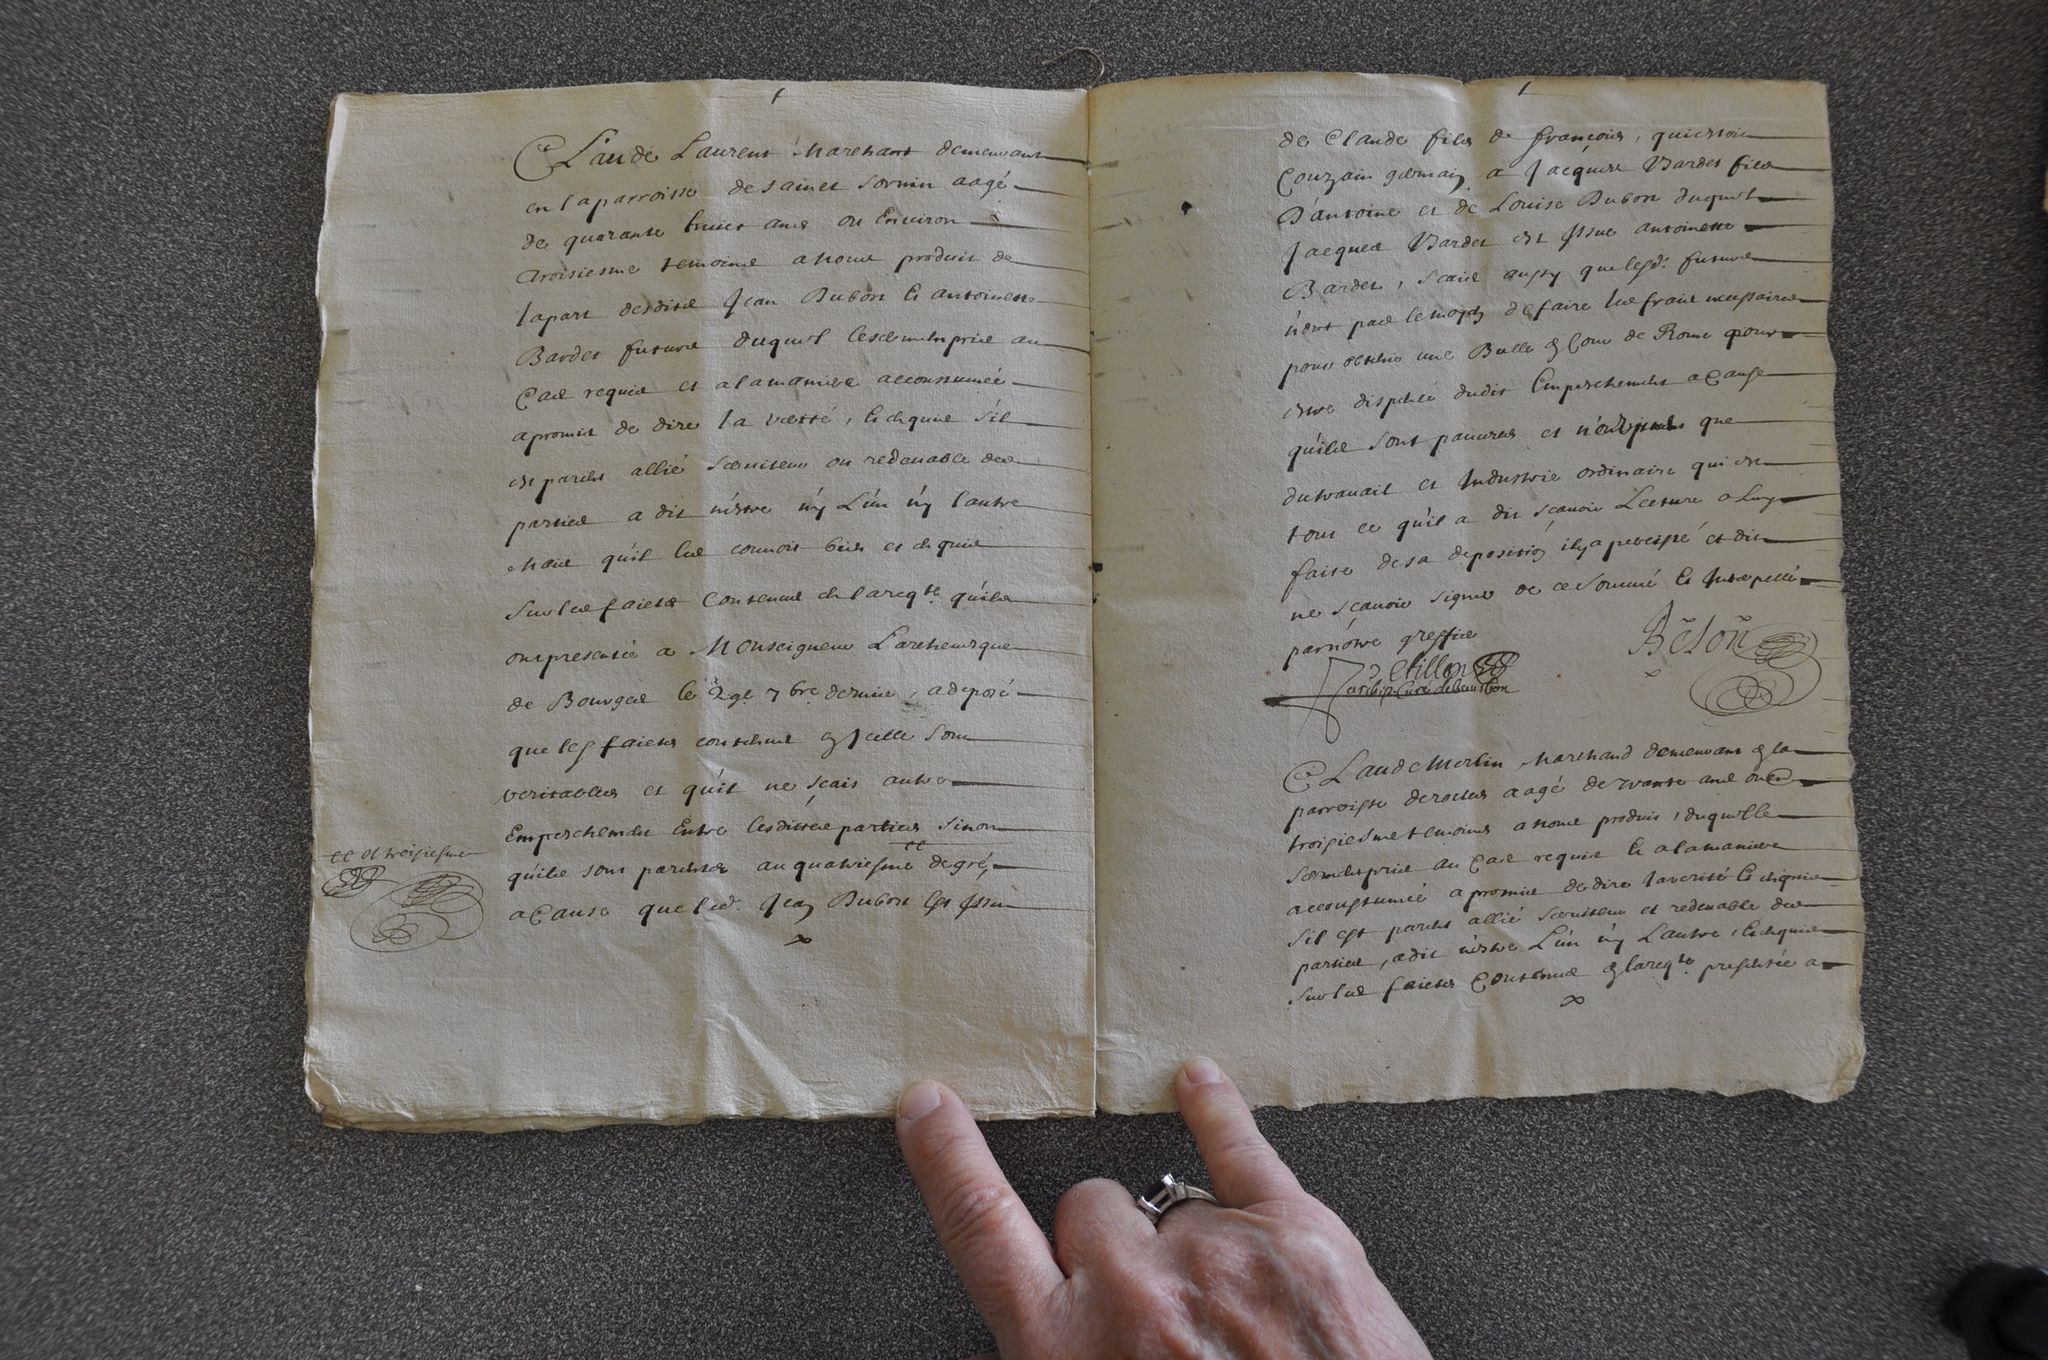 Claude Laurent Marchant demeurant
en la parroisse de sainct sornin aagé
de quarante huict ans ou Environ
troisiesme temoins a nous produit de
la part desdits Jean Dubost et antoinette
Bardet futurs duquel le serment pris au
Cas requis et a la maniere accoustumée
a promis de dire la verité, et enquis s'il
est parent allié serviteur ou redevable des
parties a dit n'estre n'y L'un n'y l'autre
Mais qu'il les connoit bien et enquis
Sur les faicts Contenus en la reqte. qu'ils
ont presentée a Monseigneur L'archevesque
de Bourges le 29e 7bre dernier, a deposé
que les faicts contenus en Jcelle sont
veritables et qu'il ne sçait autre
Empeschement Entre lesdittes parties sinon
qu'ils sont parents au quatriesme degré,
a Cause que led. Jean Dubost Est Issu
et troisiesme
de Claude fils de françois, qui estoit
Couzain germain a Jacques Bardet fils
D'antoine et de Louise Dubost duquel
Jacques Bardet est Issue antoinette
Bardet, scait aussy que lesd. futurs
n'ont pas le moyen de faire les frais necessaires
pour obtenir une Bulle en Cour de Rome pour
estre dispensé dudit Empeschement a Cause
qu'ils sont pauvres et n'ont que
du travail et Industrie ordinaire qui est
tout ce qu'il a dit scavoir Lecture a Luy
faite de sa deposition il y a percisté et dit
ne scavoir signer de ce sommé et Interpellé
par nôtre greffier
Betillon Beson
archip. Curé de bourbon
Claude Merlin Marchand demeurant en la
parroisse de rocles aagé de trante ans ou en
troisiesme temoins a nous produit, duquel le
serment pris au Cas requis et a la maniere
accoustumée a promis de dire la verité et enquis
s'il est parent allié serviteur et redevable des
parties, a dit n'estre L'un n'y L'autre, Et enquis
sur les faicts Contenus en la reqte. presentée a